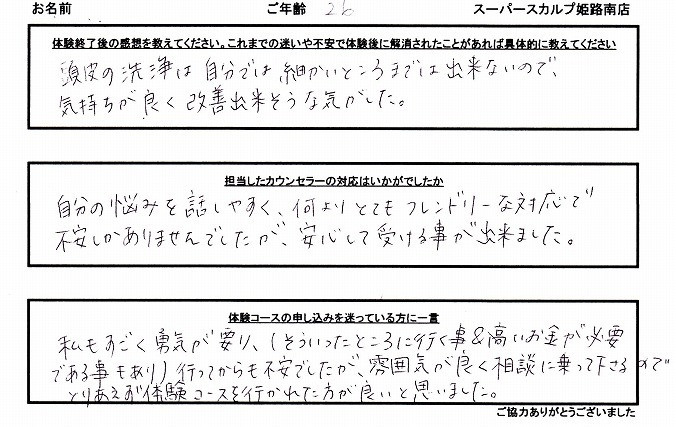 お名前 ご年齢 26 スーパースカルプ姫路南店
体験終了後の感想を教えてください。これまでの迷いや不安で体験後に解消されたことがあれば具体的に教えてください
頭皮の洗浄は自分では細かいところまでは出来ないので、
気持ちが良く改善出来そうな気がした。
担当したカウンセラーの対応はいかがでしたか
自分の悩みを話しやすく、何よりとてもフレンドリーな対応で
不安しかありませんでしたが、安心して受ける事が出来ました。
体験コースの申し込みを迷っている方に一言
私もすごく勇気が要り、(そういったところに行く事&高いお金が必要
である事もあり)行ってからも不安でしたが、雰囲気が良く相談に乗って下さるので
とりあえず体験コースを行かれた方が良いと思いました。
ご協力ありがとうございました